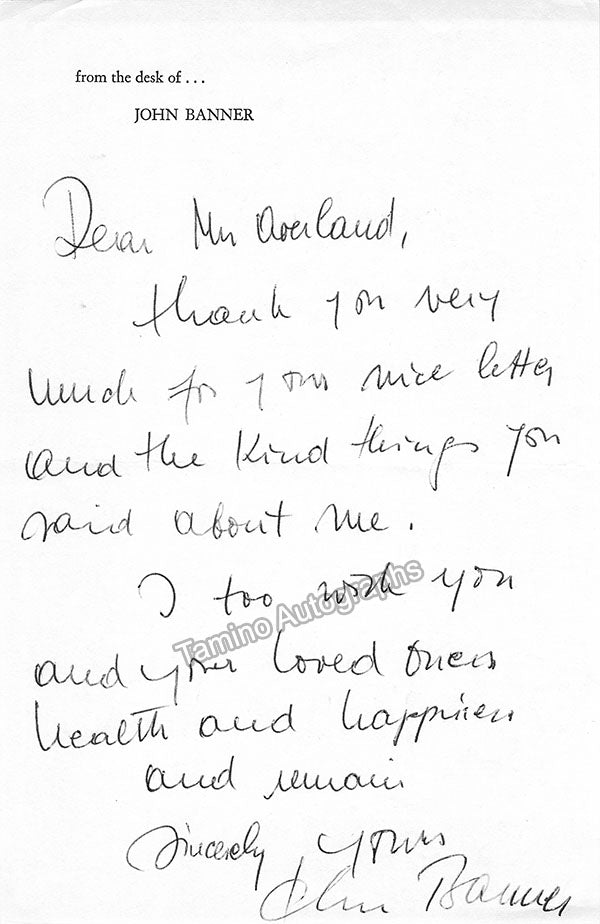 from the desk of . . .
JOHN BANNER
Dear Mr Overland,
thank you very
much for your nice letter
and the kind things you
said about me.
I too wish you
Tamino Autographs
and your loved ones
health and happiness
and remain
Sincerely yours
John Banner